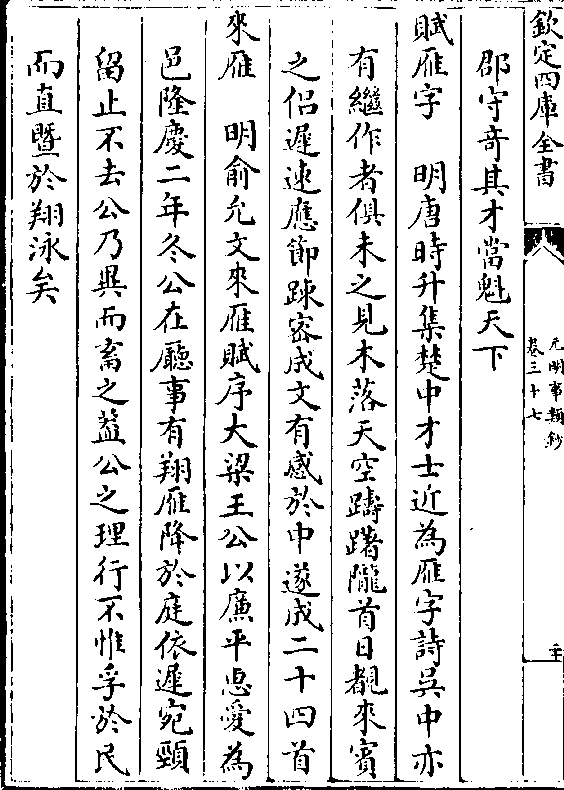 欽定四庫全書
元明事類鈔
卷三十七
郡守奇其才當魁天下
賦雁字　明唐時升集楚中才士近為雁字詩吳中亦
有繼作者俱未之見木落天空躊躇隴首日覩來賓
之侣遲速應節踈密成文有感於中遂成二十四首
來雁　明俞允文來雁賦序大梁王公以廉平惠愛為
邑隆慶二年冬公在廳事有翔雁降於庭依遲宛頸
留止不去公乃異而畜之葢公之理行不惟孚於民
而直暨於翔泳矣